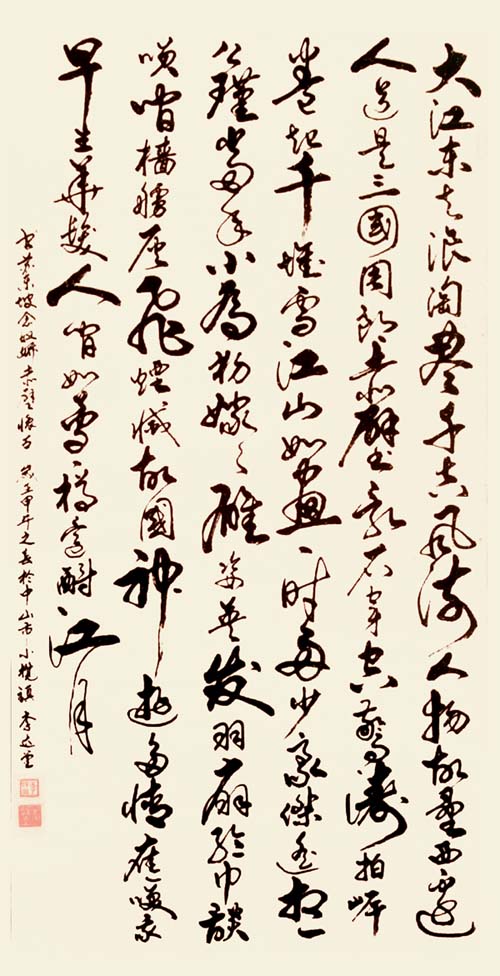 大江东去浪淘尽千古风流人物故垒西边
人道是三國周郎赤壁乱石穿空驚涛拍岸
卷起千堆雪江山如画一时多少豪傑遥想
公瑾当年小乔初嫁了雄姿英发羽扇纶巾談
咲间檣艣灰飛煙滅故國神遊多情應咲我
早生華髮人间如夢一樽還酹江月
书苏东坡念奴娇赤壁怀古 岁在甲午之春於中山市小欖鎮李